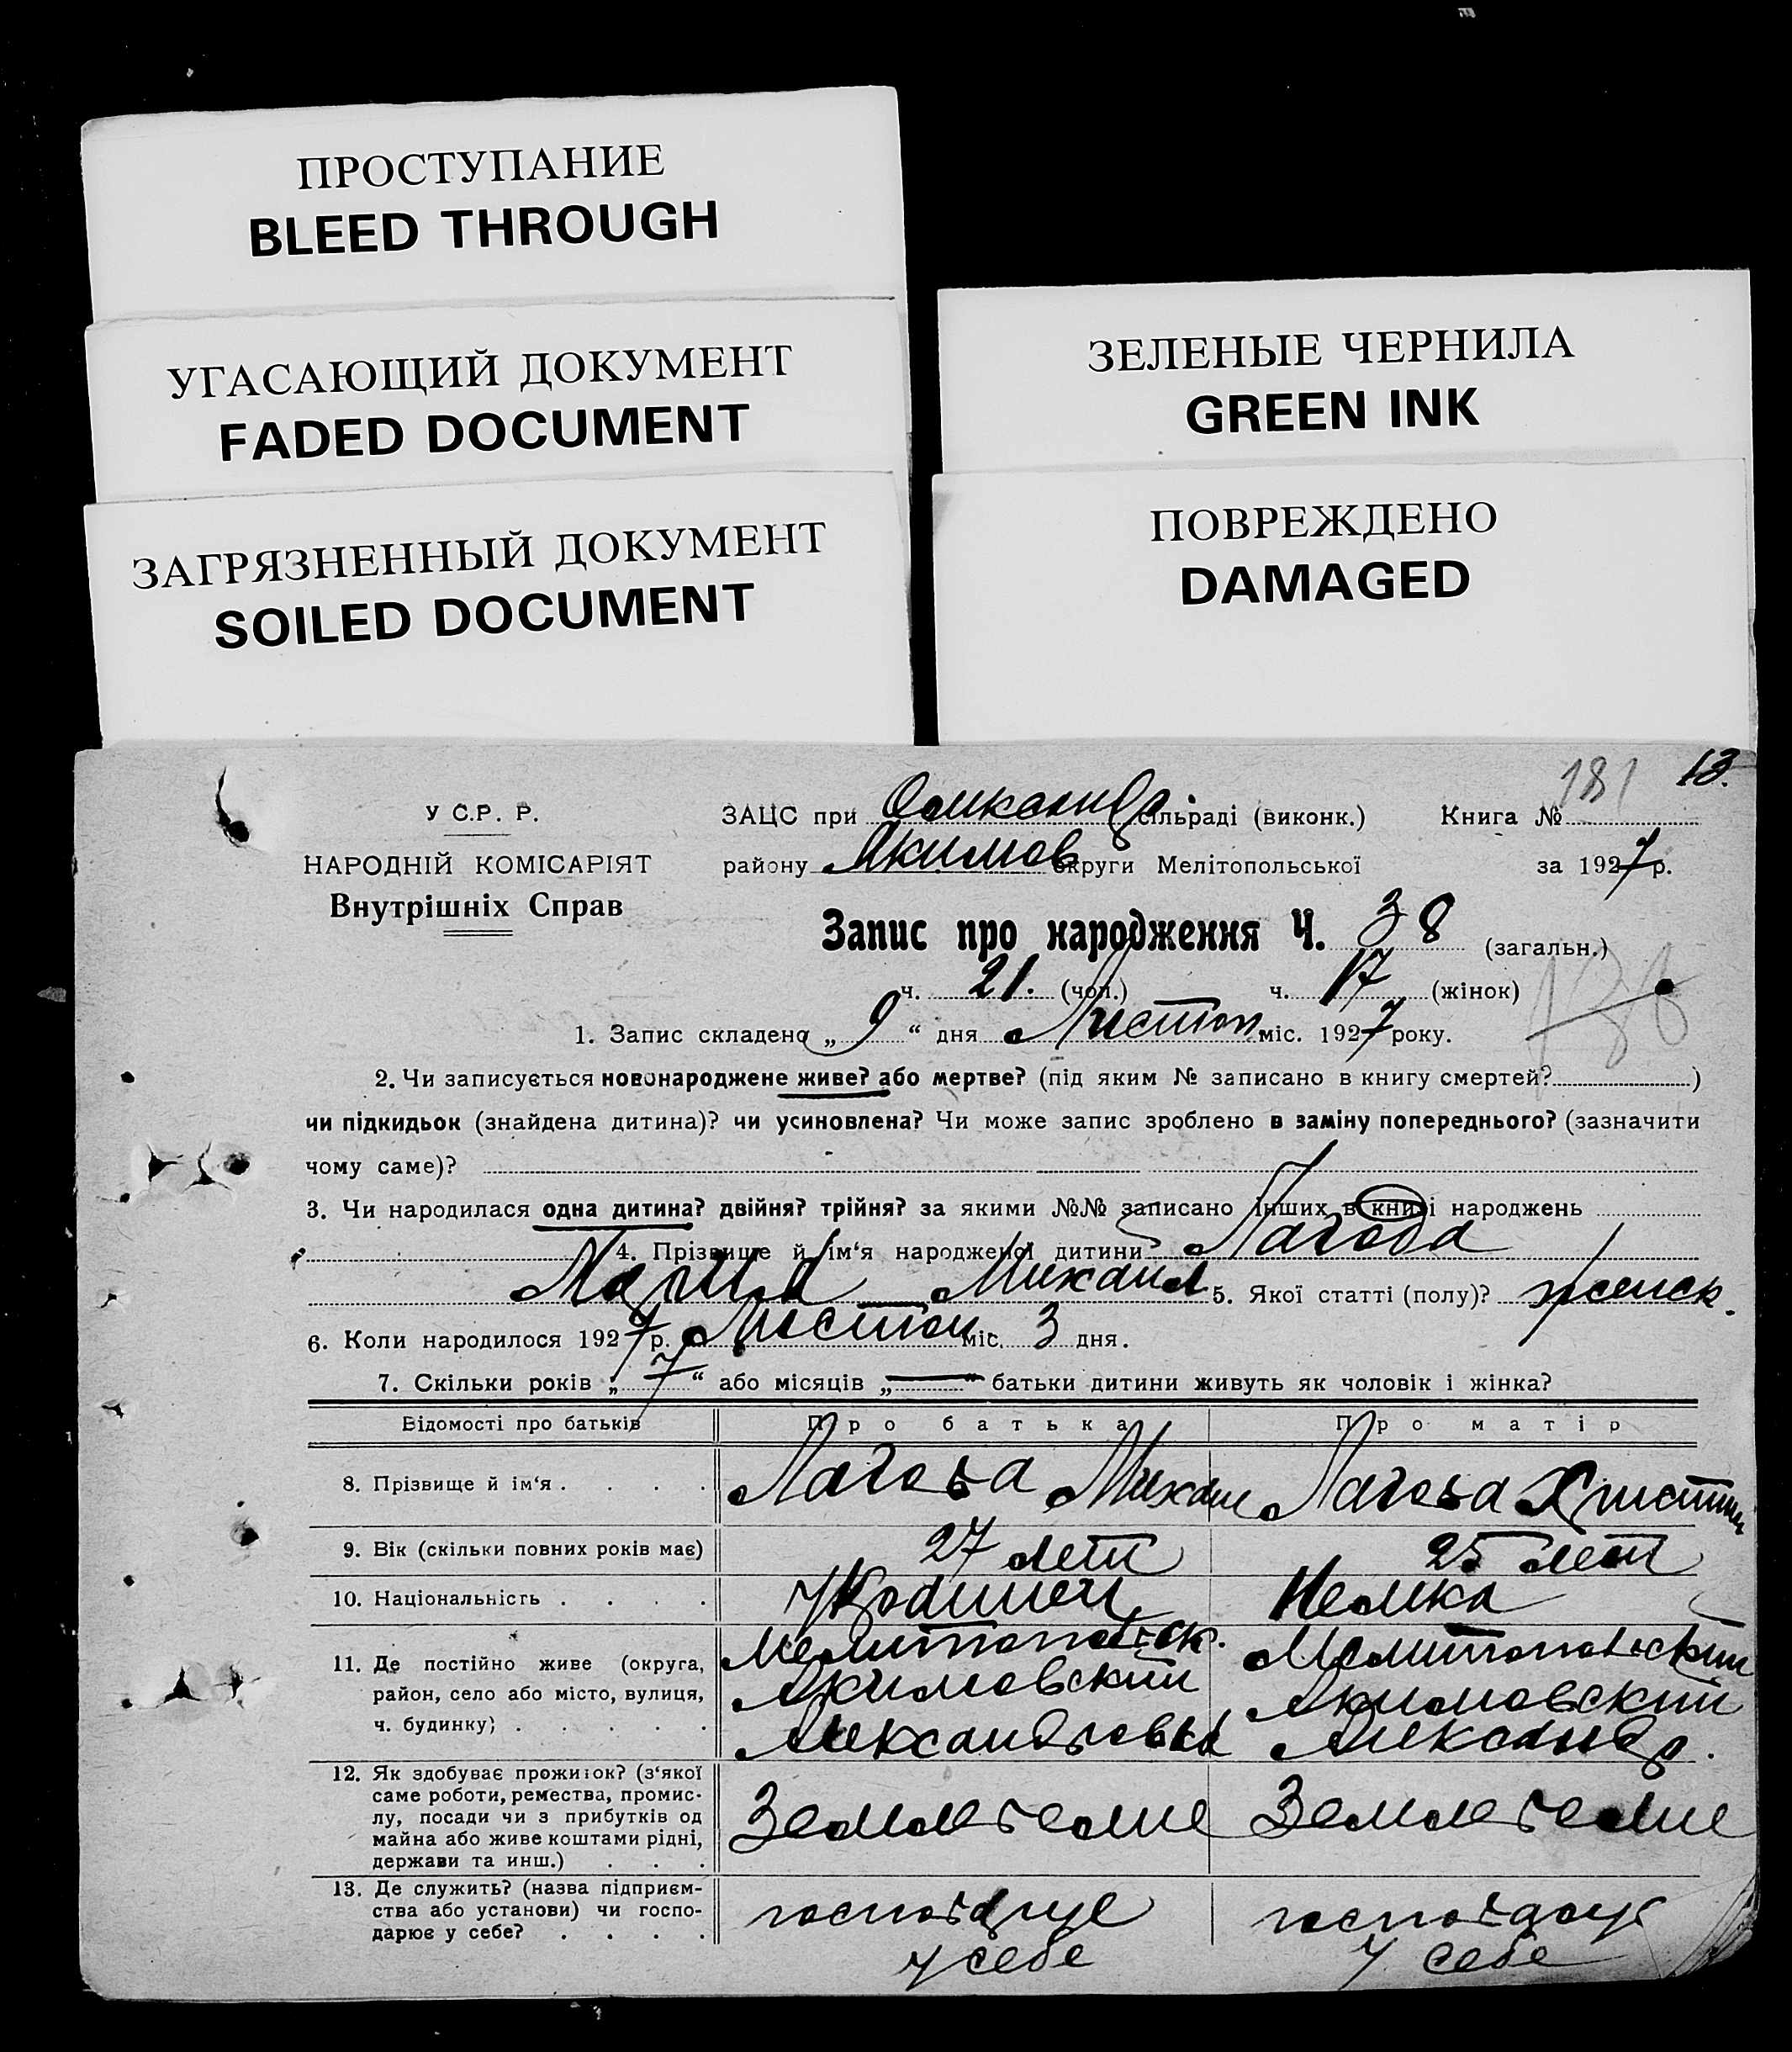 ПРОСТУПАНИЕ
BLEED THROUGH
УГАСАЮЩИЙ ДОКУМЕНТ
FADED DOCUMENT
ЗАГРЯЗНЕННЫЙ ДОКУМЕНТ
SOILED DOCUMENT
ЗЕЛЕНЫЕ ЧЕРНИЛА
GREEN INK
ПОВРЕЖДЕНО
DAMAGED
181 13.
У С.Р. Р.
НАРОДНІЙ КОМІСАРІЯТ
Внутрішніх Справ
ЗАЦС при сільраді (виконк.) Книга №
району Якимов округи Мелітопольської за 1927 р.
Запис про народження Ч. 38 (загальн.)
ч. 21. (чол.) ч. 17 (жінок)
1. Запис складено „ 9 “ дня Листоп міс. 1927 року.
2. Чи записується новонароджене живе? або мертве? (під яким № записано в книгу смертей? )
чи підкидьок (знайдена дитина)? чи усиновлена? Чи може запис зроблено в заміну попереднього? (зазначити
чому саме)?
3. Чи народилася одна дитина? двійня? трійня? за якими №№ записано інших в книзі народжень
4. Прізвище й ім‘я народженої дитини Лагода
Мария Михаил 5. Якої статті (полу)? женск.
6. Коли народилося 1927 р. Листоп міс. 3 дня.
7. Скільки років „ 7 “ або місяців „ — “ батьки дитини живуть як чоловік і жінка?
Відомості про батьків Про батька Про матір
8. Прізвище й ім‘я . . . . Лагода Михаил Лагода
9. Вік (скільки повних років має) 27 лет 25 лет
10. Національність . . . . Немка
11. Де постійно живе (округа, район, село або місто, вулиця, ч. будинку) . . . . .
Мелитопольск. Мелитопольский
Акимовский Акимовский
Александровка Александр.
12. Як здобуває прожиток? (з‘якої
саме роботи, ремества, промис-
лу, посади чи з прибутків од
майна або живе коштами рідні,
держави та инш.) . . .
13. Де служить? (назва підприєм-
ства або установи) чи госпо-
дарює у себе? . . . .
у себе у себе